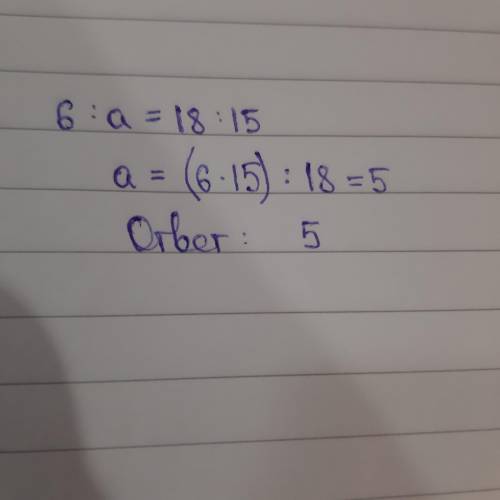 6 : a = 18 : 15
a = (6 · 15) : 18 = 5
Ответ: 5